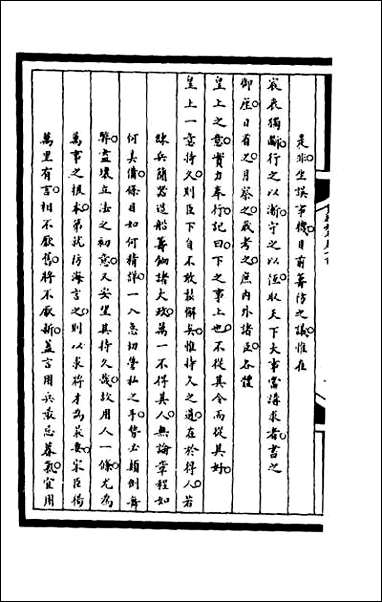 是非坐誤事機目前籌防之議惟在
宸衷獨斷行之以漸守之以恆取天下大事當講求者書之
御座日省之月察之歲考之庶內外諸臣各體
皇上之意實力奉行記曰下之事上也不從其令而從其好
皇上一意持久則臣下自不敢懈矣惟持久之道在於得人若
練兵簡器造船籌餉諸大政萬一不得其人無論章程如
何美備條目如何精詳一入急切營私之手勢必顛倒舞
弊盡壞立法之初意又安望其持久哉故用人一條尤為
萬事之根本第就防海言之則以求將才為最要宋臣楊
萬里有言相不厭舊將不厭新蓋言用兵最忌暮氣宜用